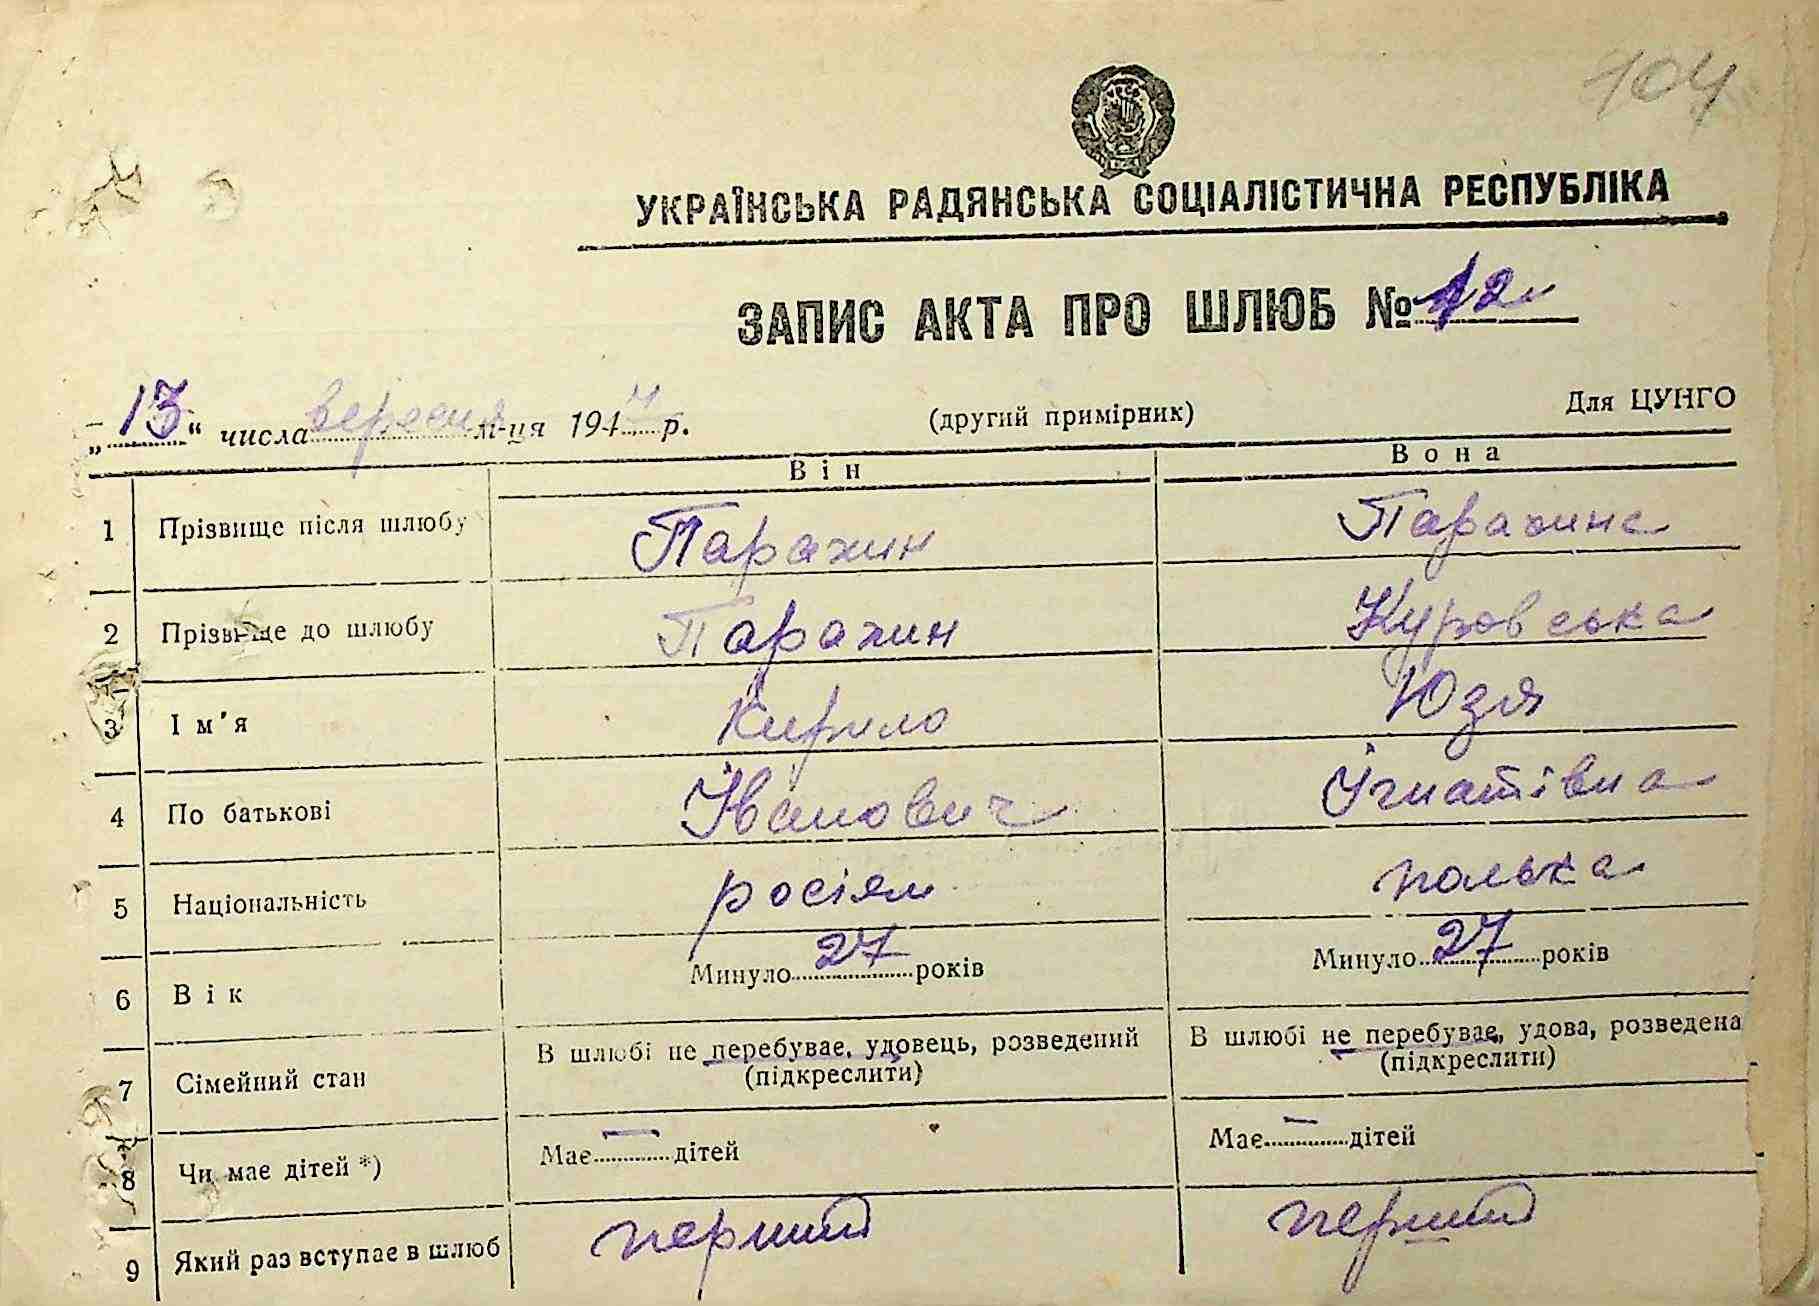 104
УКРАЇНСЬКА РАДЯНСЬКА СОЦІАЛІСТИЧНА РЕСПУБЛІКА
ЗАПИС АКТА ПРО ШЛЮБ № 12
„13“ числа вересня м-ця 1944 р. (другий примірник) Для ЦУНГО
Він Вона
1 Прізвище після шлюбу Парахин Парахина
2 Прізвище до шлюбу Парахин Куровська
3 Ім'я Кирило Юзя
4 По батькові Іванович Ігнатівна
5 Національність росіян полька
6 Вік Минуло 27 років Минуло 27 років
7 Сімейний стан В шлюбі не перебуває, удовець, розведений (підкреслити) В шлюбі не перебуває, удова, розведена (підкреслити)
8 Чи має дітей *) Має — дітей Має — дітей
9 Який раз вступає в шлюб перший перший